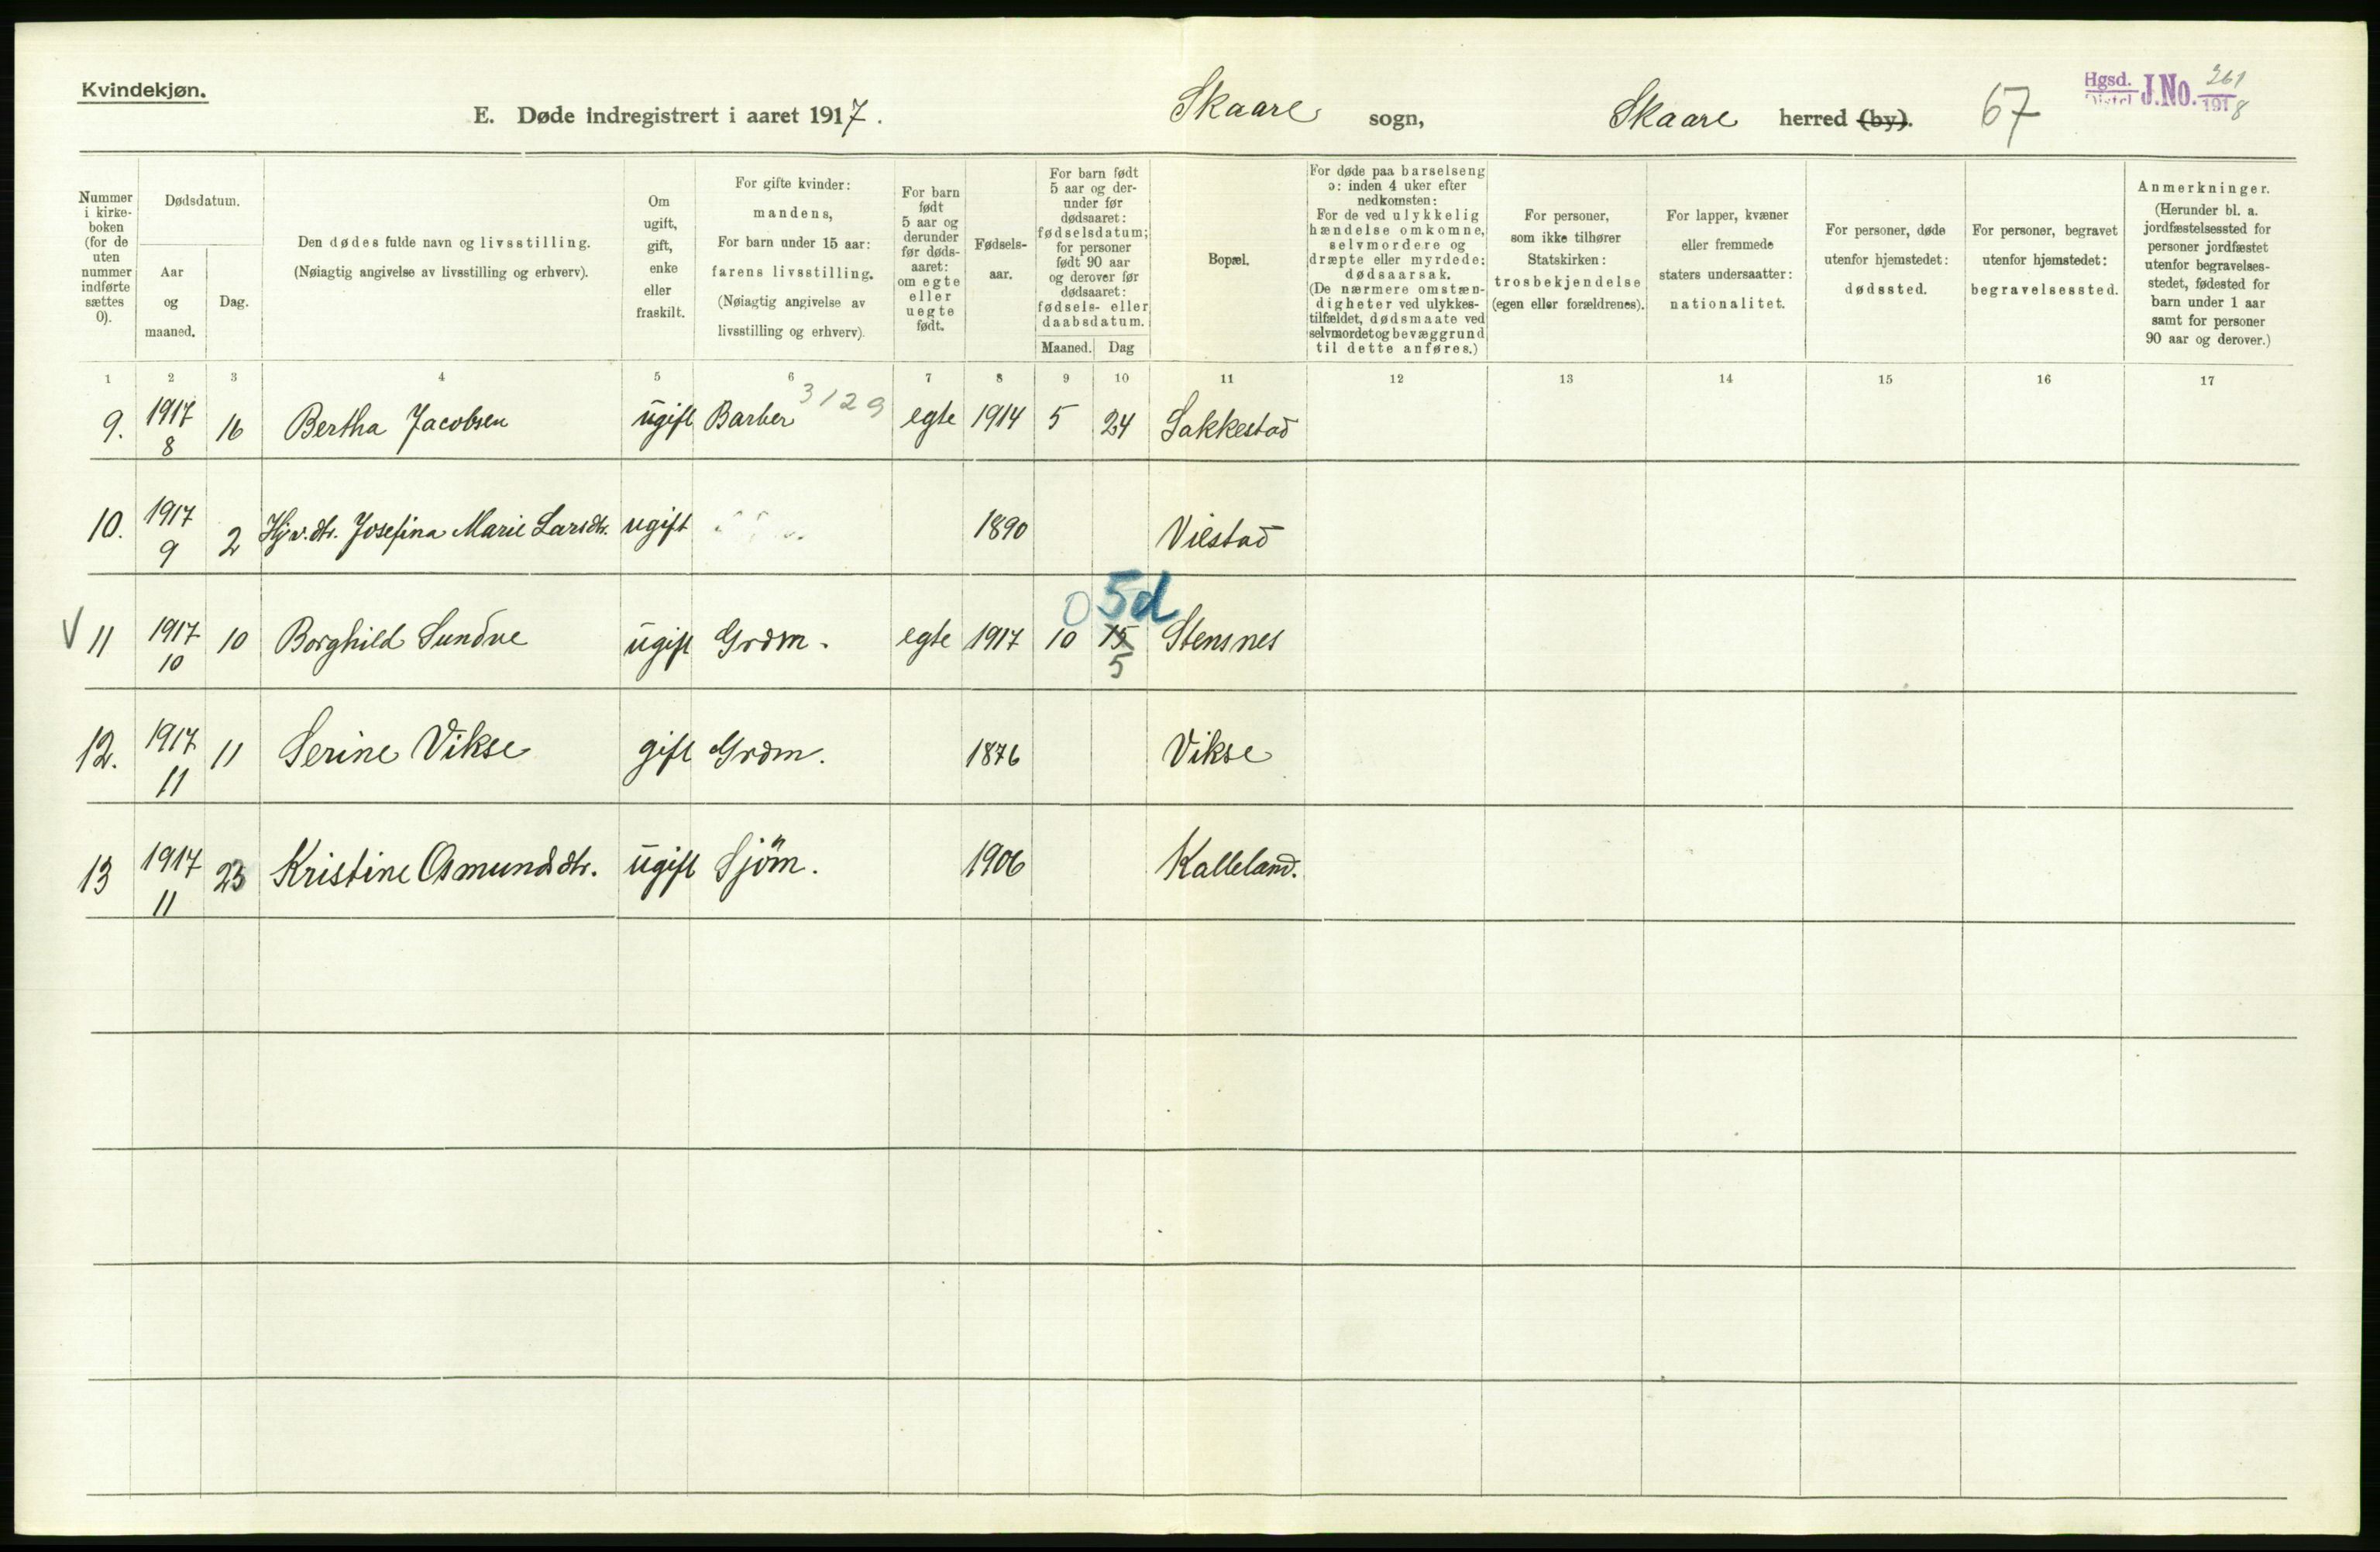 Kvindekjøn.
E. Døde indregistrert i aaret 1917. Skaare sogn, Skaare herred (by). 67
Hgsd. Distri J.No. 261 1918
Nummer i kirke- boken (for de uten nummer indførte sættes 0).
Dødsdatum.
Aar og maaned.
Dag.
Den dødes fulde navn og livsstilling.
(Nøiagtig angivelse av livsstilling og erhverv).
Om ugift, gift, enke eller fraskilt.
For gifte kvinder: mandens,
For barn under 15 aar: farens livsstilling.
(Nøiagtig angivelse av livsstilling og erhverv).
For barn født 5 aar og derunder før døds- aaret: om egte eller uegte født.
Fødsels- aar.
For barn født 5 aar og der- under før dødsaaret: fødselsdatum; for personer født 90 aar og derover før dødsaaret: fødsels- eller daabsdatum.
Maaned. Dag
Bopæl.
For døde paa barselseng ɔ: inden 4 uker efter nedkomsten:
For de ved ulykkelig hændelse omkomne, selvmordere og dræpte eller myrdede: dødsaarsak.
(De nærmere omstæn- digheter ved ulykkes- tilfældet, dødsmaate ved selvmordet og bevæggrund til dette anføres.)
For personer, som ikke tilhører Statskirken: trosbekjendelse (egen eller forældrenes).
For lapper, kvæner eller fremmede staters undersaatter: nationalitet.
For personer, døde utenfor hjemstedet: dødssted.
For personer, begravet utenfor hjemstedet: begravelsessted.
Anmerkninger.
(Herunder bl. a. jordfæstelsessted for personer jordfæstet utenfor begravelses- stedet, fødested for barn under 1 aar samt for personer 90 aar og derover.)
1 2 3 4 5 6 7 8 9 10 11 12 13 14 15 16 17
3129
9. 1917 8 16 Bertha Jacobsen ugift Barber egte 1914 5 24 Sakkestad
10. 1917 9 2 Hjv. dtr. Josefina Marie Larsdtr. ugift 1890 Vilstad
0 5d
V 11 1917 10 10 Borghild Sundve ugift Grdm. egte 1917 10 15 5 Stensnes
12. 1917 11 11 Serine Vikse gift Grdm. 1876 Vikse
13 1917 11 23 Kristine Osmundsdtr. ugift Sjöm. 1906 Kalleland.